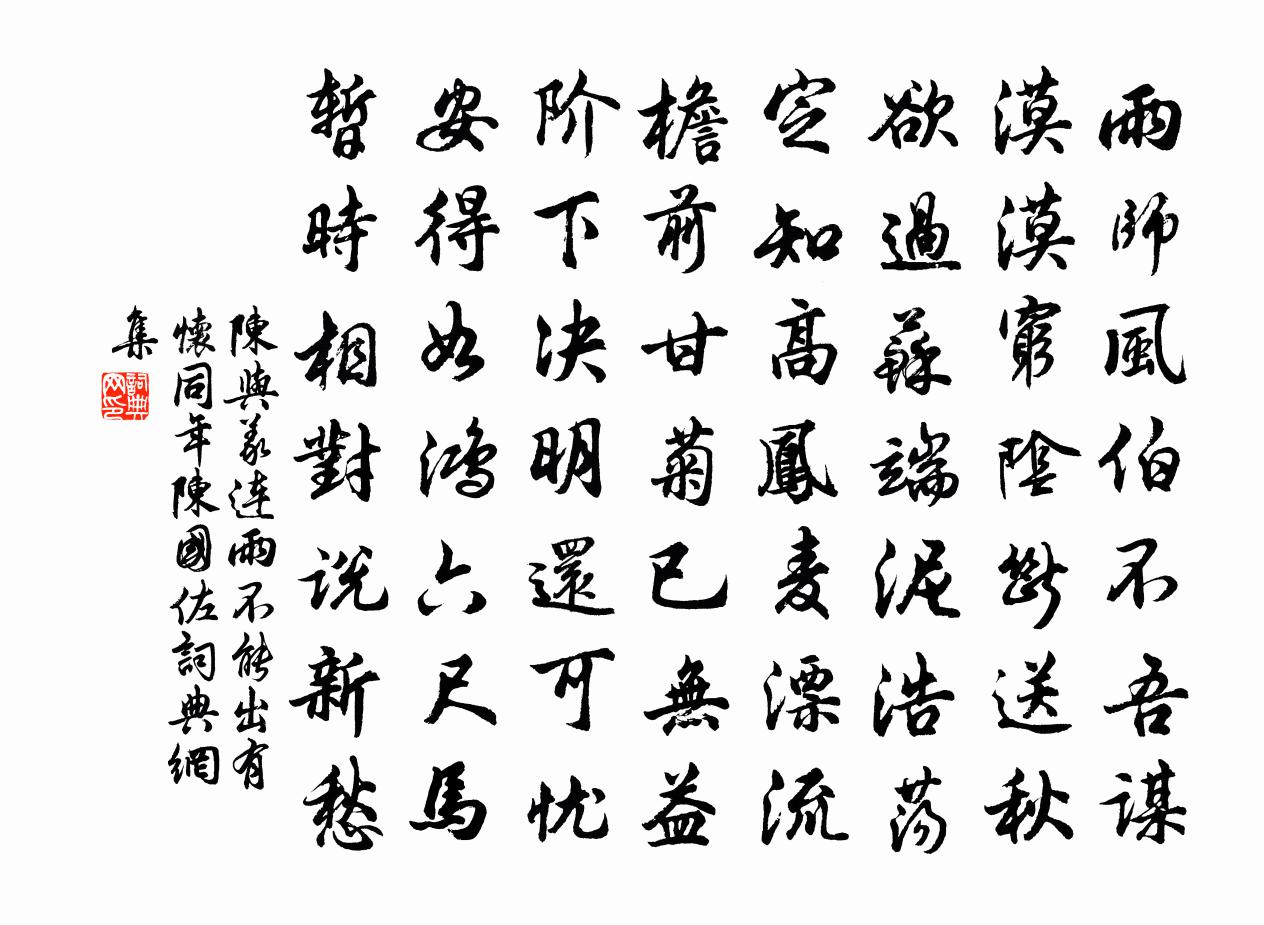 雨師風伯不吾謀
漠漠窮陰斷送秋
欲過蘇端泥浩荡
定知高鳳麦漂流
檐前甘菊已無益
阶下決明還可忧
安得如鴻六尺馬
暫時相對説新愁
陳與義連雨不能出有
懷同年陳國佐詞典網
集
詞典
网印